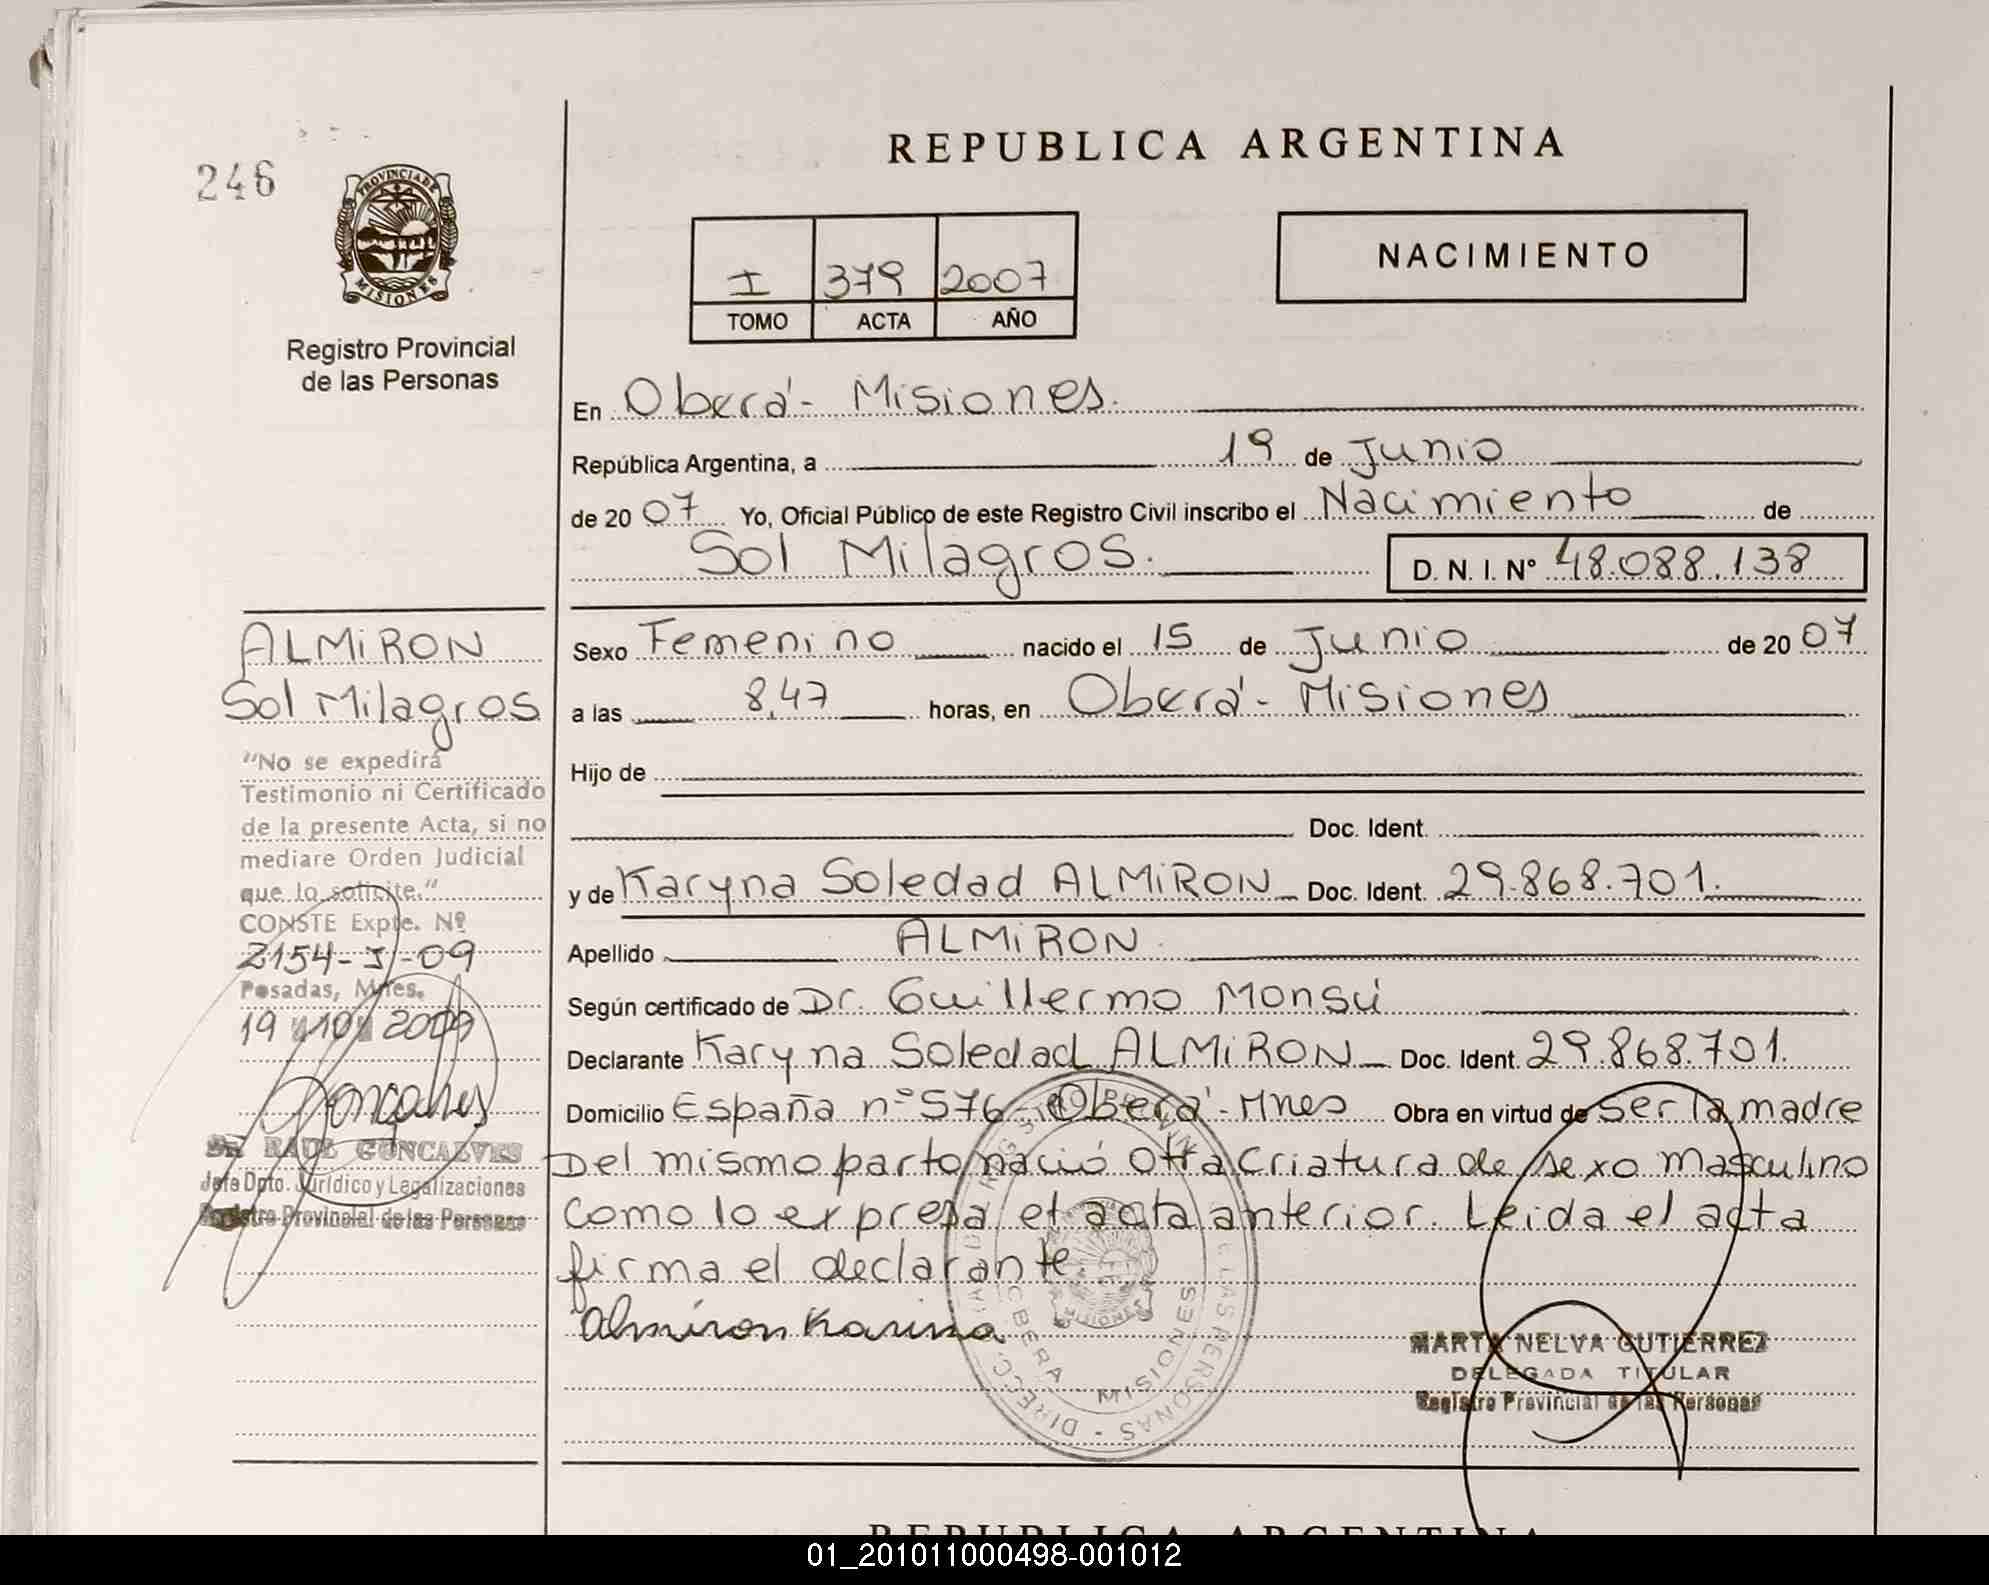 246
PROVINCIA DE
MISIONES
Registro Provincial
de las Personas
REPUBLICA ARGENTINA
I 379 2007
TOMO ACTA AÑO
NACIMIENTO
En Oberá - Misiones.
República Argentina, a 19 de Junio
de 2007 Yo, Oficial Público de este Registro Civil inscribo el Nacimiento de
Sol Milagros. D. N. I. Nº 48.088.138
ALMiRON
Sol Milagros
"No se expedirá
Testimonio ni Certificado
de la presente Acta, si no
mediare Orden Judicial
que lo solicite."
CONSTE Expte. Nº
2154-J-09
Posadas, Mnes.
19 10 2009
Goncalves
Dr. RAUL GONCALVES
Jefe Dpto. Jurídico y Legalizaciones
Registro Provincial de las Personas
Sexo Femenino nacido el 15 de Junio de 2007
a las 8,47 horas, en Oberá - Misiones
Hijo de
Doc. Ident.
y de Karyna Soledad ALMiRON Doc. Ident. 29.868.701.
Apellido ALMiRON.
Según certificado de Dr. Guillermo Monsú
Declarante Karyna Soledad ALMiRON Doc. Ident. 29.868.701.
Domicilio España nº 576 - Oberá - Mnes Obra en virtud de ser la madre
Del mismo parto nació otra criatura de sexo masculino
como lo expresa el acta anterior. Leida el acta
firma el declarante
Almiron Karina
MISIONES
MARTA NELVA GUTIERREZ
DELEGADA TITULAR
Registro Provincial de las Personas
REPUBLICA ARGENTINA
01_201011000498-001012